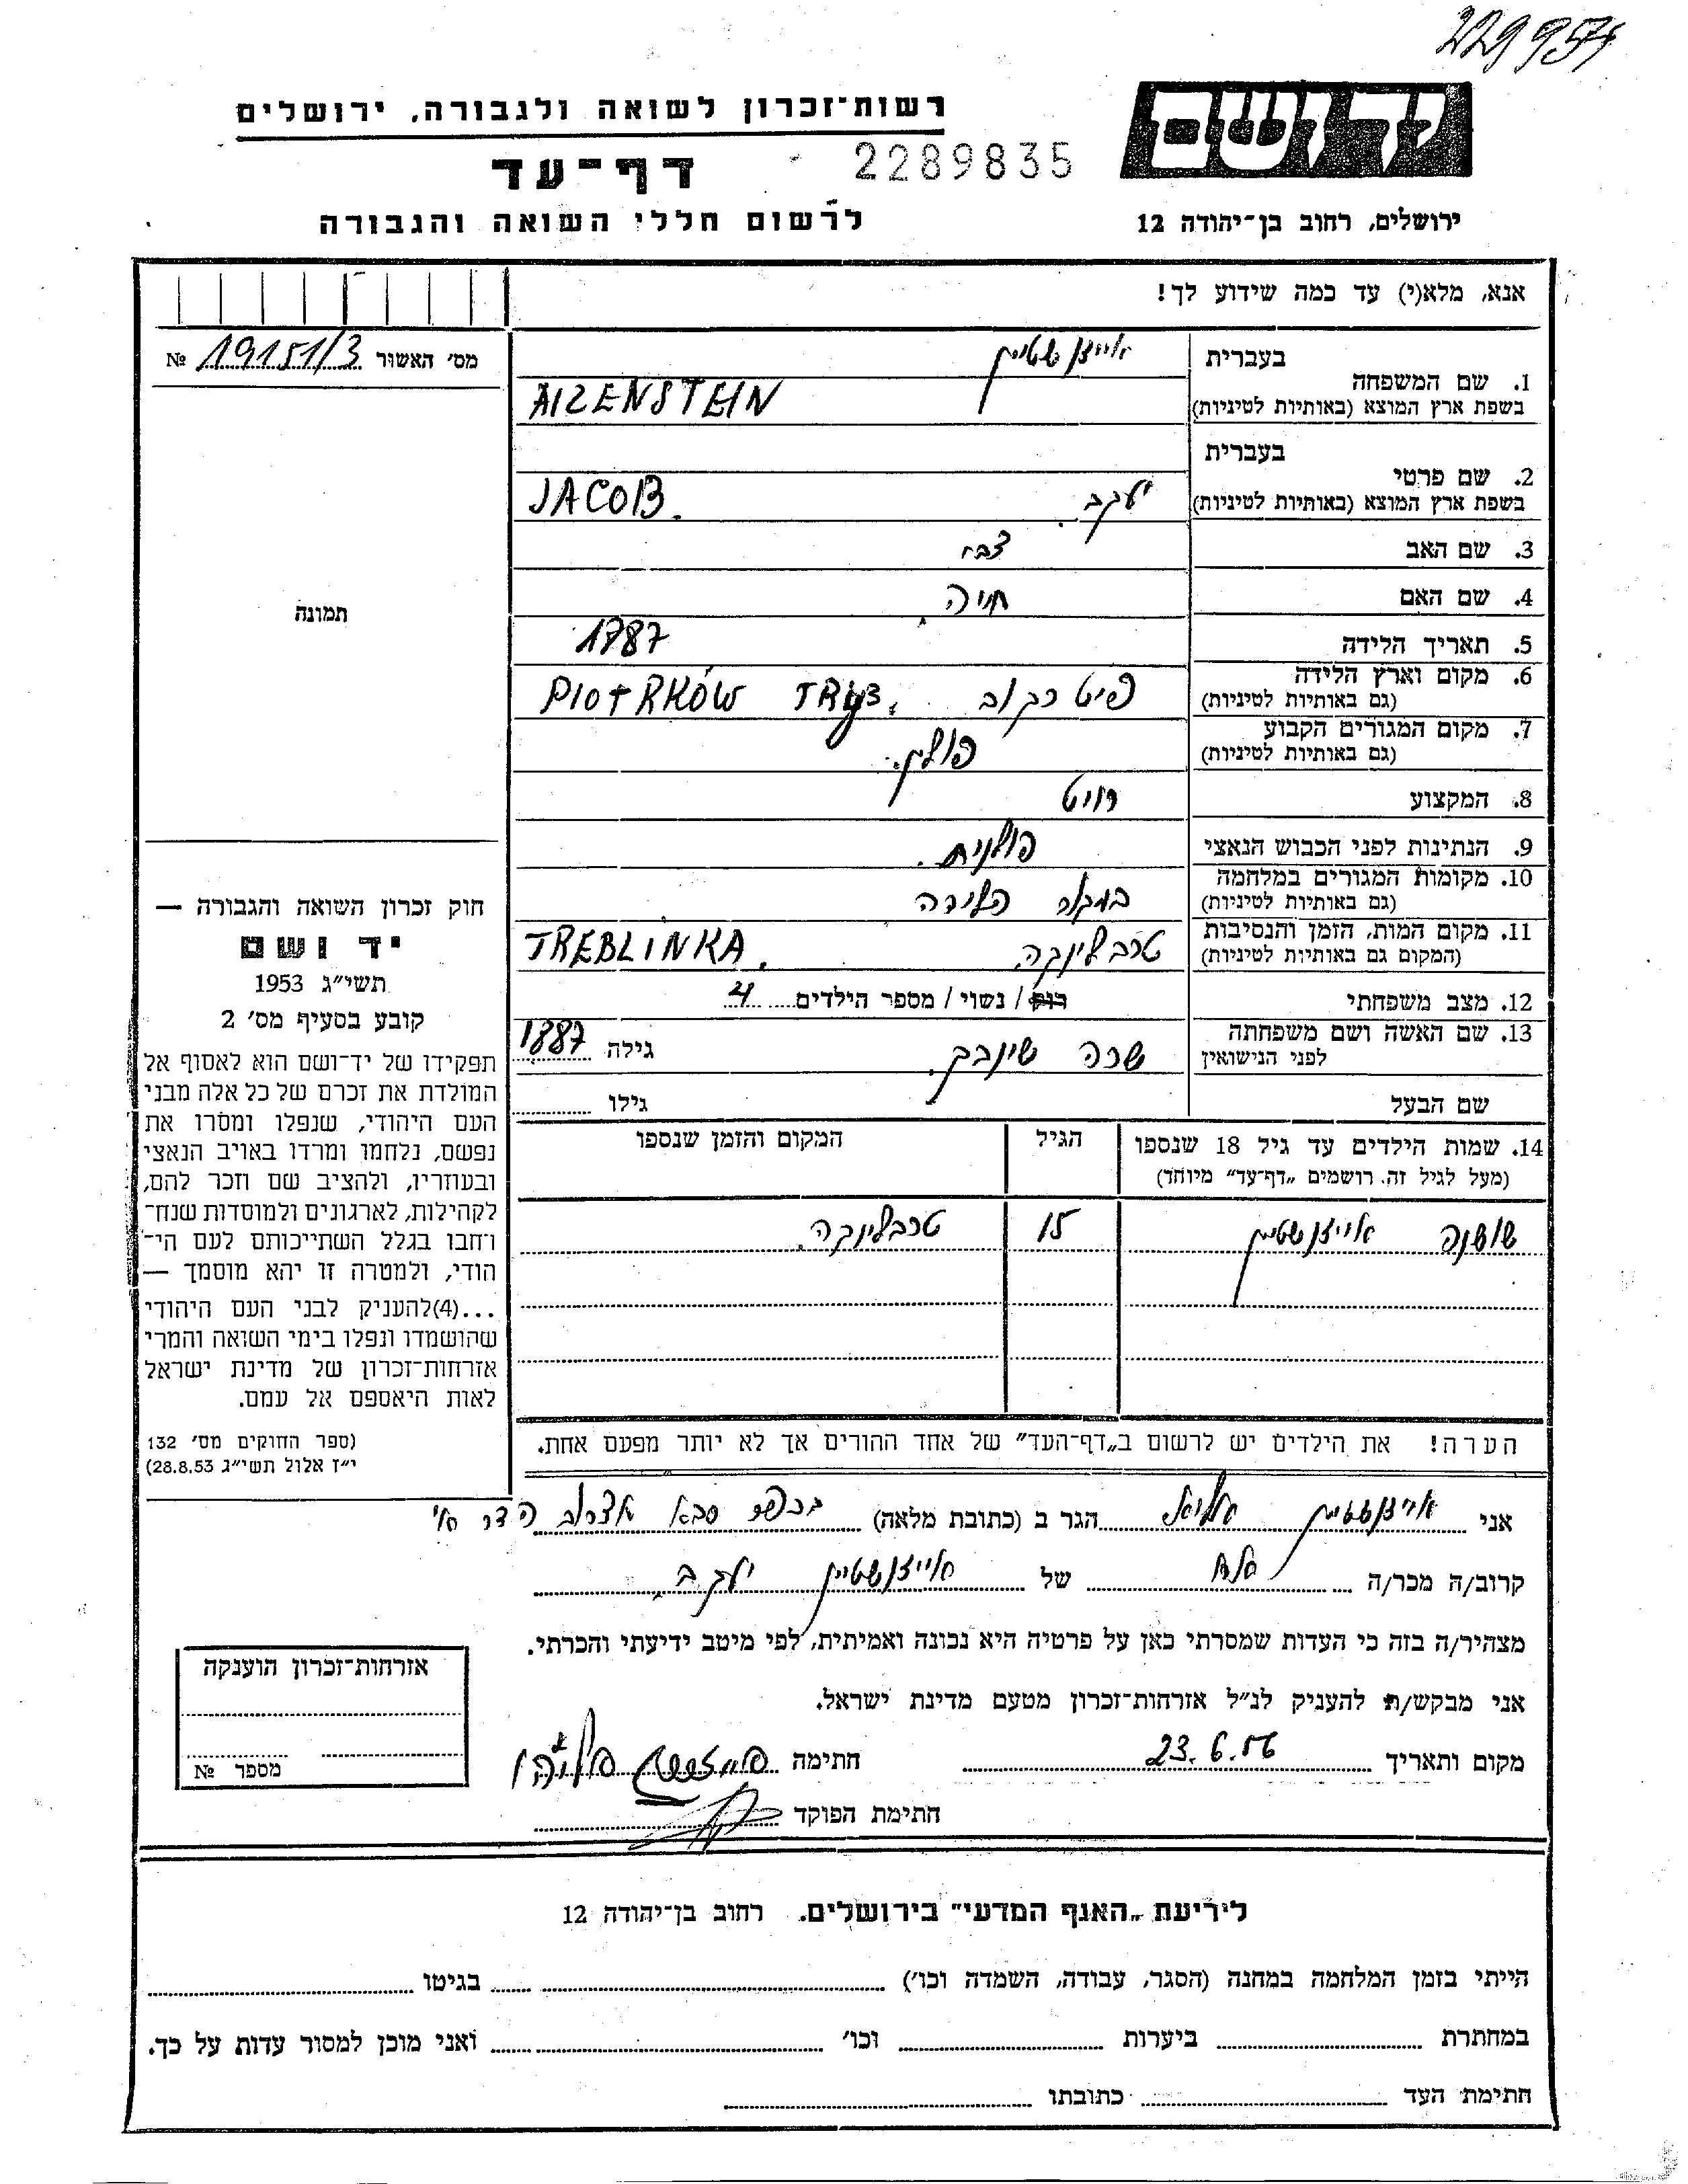 229957
רשות־זכרון לשואה ולגבורה, ירושלים
יד ושם
דף־עד
2289835
לרשום חללי השואה והגבורה
ירושלים, רחוב בן־יהודה 12
אנא, מלא(י) עד כמה שידוע לך!
מס' האשור 19151/3 №
בעברית אייזנשטיין
1. שם המשפחה
בשפת ארץ המוצא (באותיות לטיניות) AIZENSTEIN
בעברית
2. שם פרטי
בשפת ארץ המוצא (באותיות לטיניות) יעקב. JACOB.
3. שם האב צבי
4. שם האם חיה
5. תאריך הלידה 1887
6. מקום וארץ הלידה
(גם באותיות לטיניות) פיטרקוב PIOTRKÓW TRYB.
7. מקום המגורים הקבוע
(גם באותיות לטיניות) פולין.
8. המקצוע חייט
9. הנתינות לפני הכבוש הנאצי פולנית.
10. מקומות המגורים במלחמה
(גם באותיות לטיניות) במקום הלידה
11. מקום המות, הזמן והנסיבות
(המקום גם באותיות לטיניות) טרבלינקה TREBLINKA.
12. מצב משפחתי רוק / נשוי / מספר הילדים 4
13. שם האשה ושם משפחתה
לפני הנישואין שרה גילה 1887
שם הבעל גילו
14. שמות הילדים עד גיל 18 שנספו הגיל המקום והזמן שנספו
(מעל לגיל זה. רושמים „דף־עד" מיוחד)
שושנה אייזנשטיין 15 טרבלינקה.
הערה! את הילדים יש לרשום ב„דף־העד" של אחד ההורים אך לא יותר מפעם אחת.
תמונה
חוק זכרון השואה והגבורה —
יד ושם
תשי"ג 1953
קובע בסעיף מס' 2
תפקידו של יד־ושם הוא לאסוף אל
המולדת את זכרם של כל אלה מבני
העם היהודי, שנפלו ומסרו את
נפשם, נלחמו ומרדו באויב הנאצי
ובעוזריו, ולהציב שם וזכר להם,
לקהילות, לארגונים ולמוסדות שנח־
רחבו בגלל השתייכותם לעם הי־
הודי, ולמטרה זו יהא מוסמך —
...(4)להעניק לבני העם היהודי
שהושמדו ונפלו בימי השואה והמרי
אזרחות־זכרון של מדינת ישראל
לאות היאספם אל עמם.
(ספר החוקים מס' 132
י"ז אלול תשי"ג 28.8.53)
אני אייזנשטיין הגר ב (כתובת מלאה) בכפר סבא הדר
קרוב/ה מכר/ה אח של אייזנשטיין יעקב.
מצהיר/ה בזה כי העדות שמסרתי כאן על פרטיה היא נכונה ואמיתית, לפי מיטב ידיעתי והכרתי.
אני מבקש/ת להעניק לנ"ל אזרחות־זכרון מטעם מדינת ישראל.
מקום ותאריך 23.6.56 חתימה
חתימת הפוקד
אזרחות־זכרון הוענקה
מספר №
לידיעת „האגף המדעי" בירושלים. רחוב בן־יהודה 12
הייתי בזמן המלחמה במחנה (הסגר, עבודה, השמדה וכו') בגיטו
במחתרת ביערות וכו' ואני מוכן למסור עדות על כך.
חתימת העד כתובתו